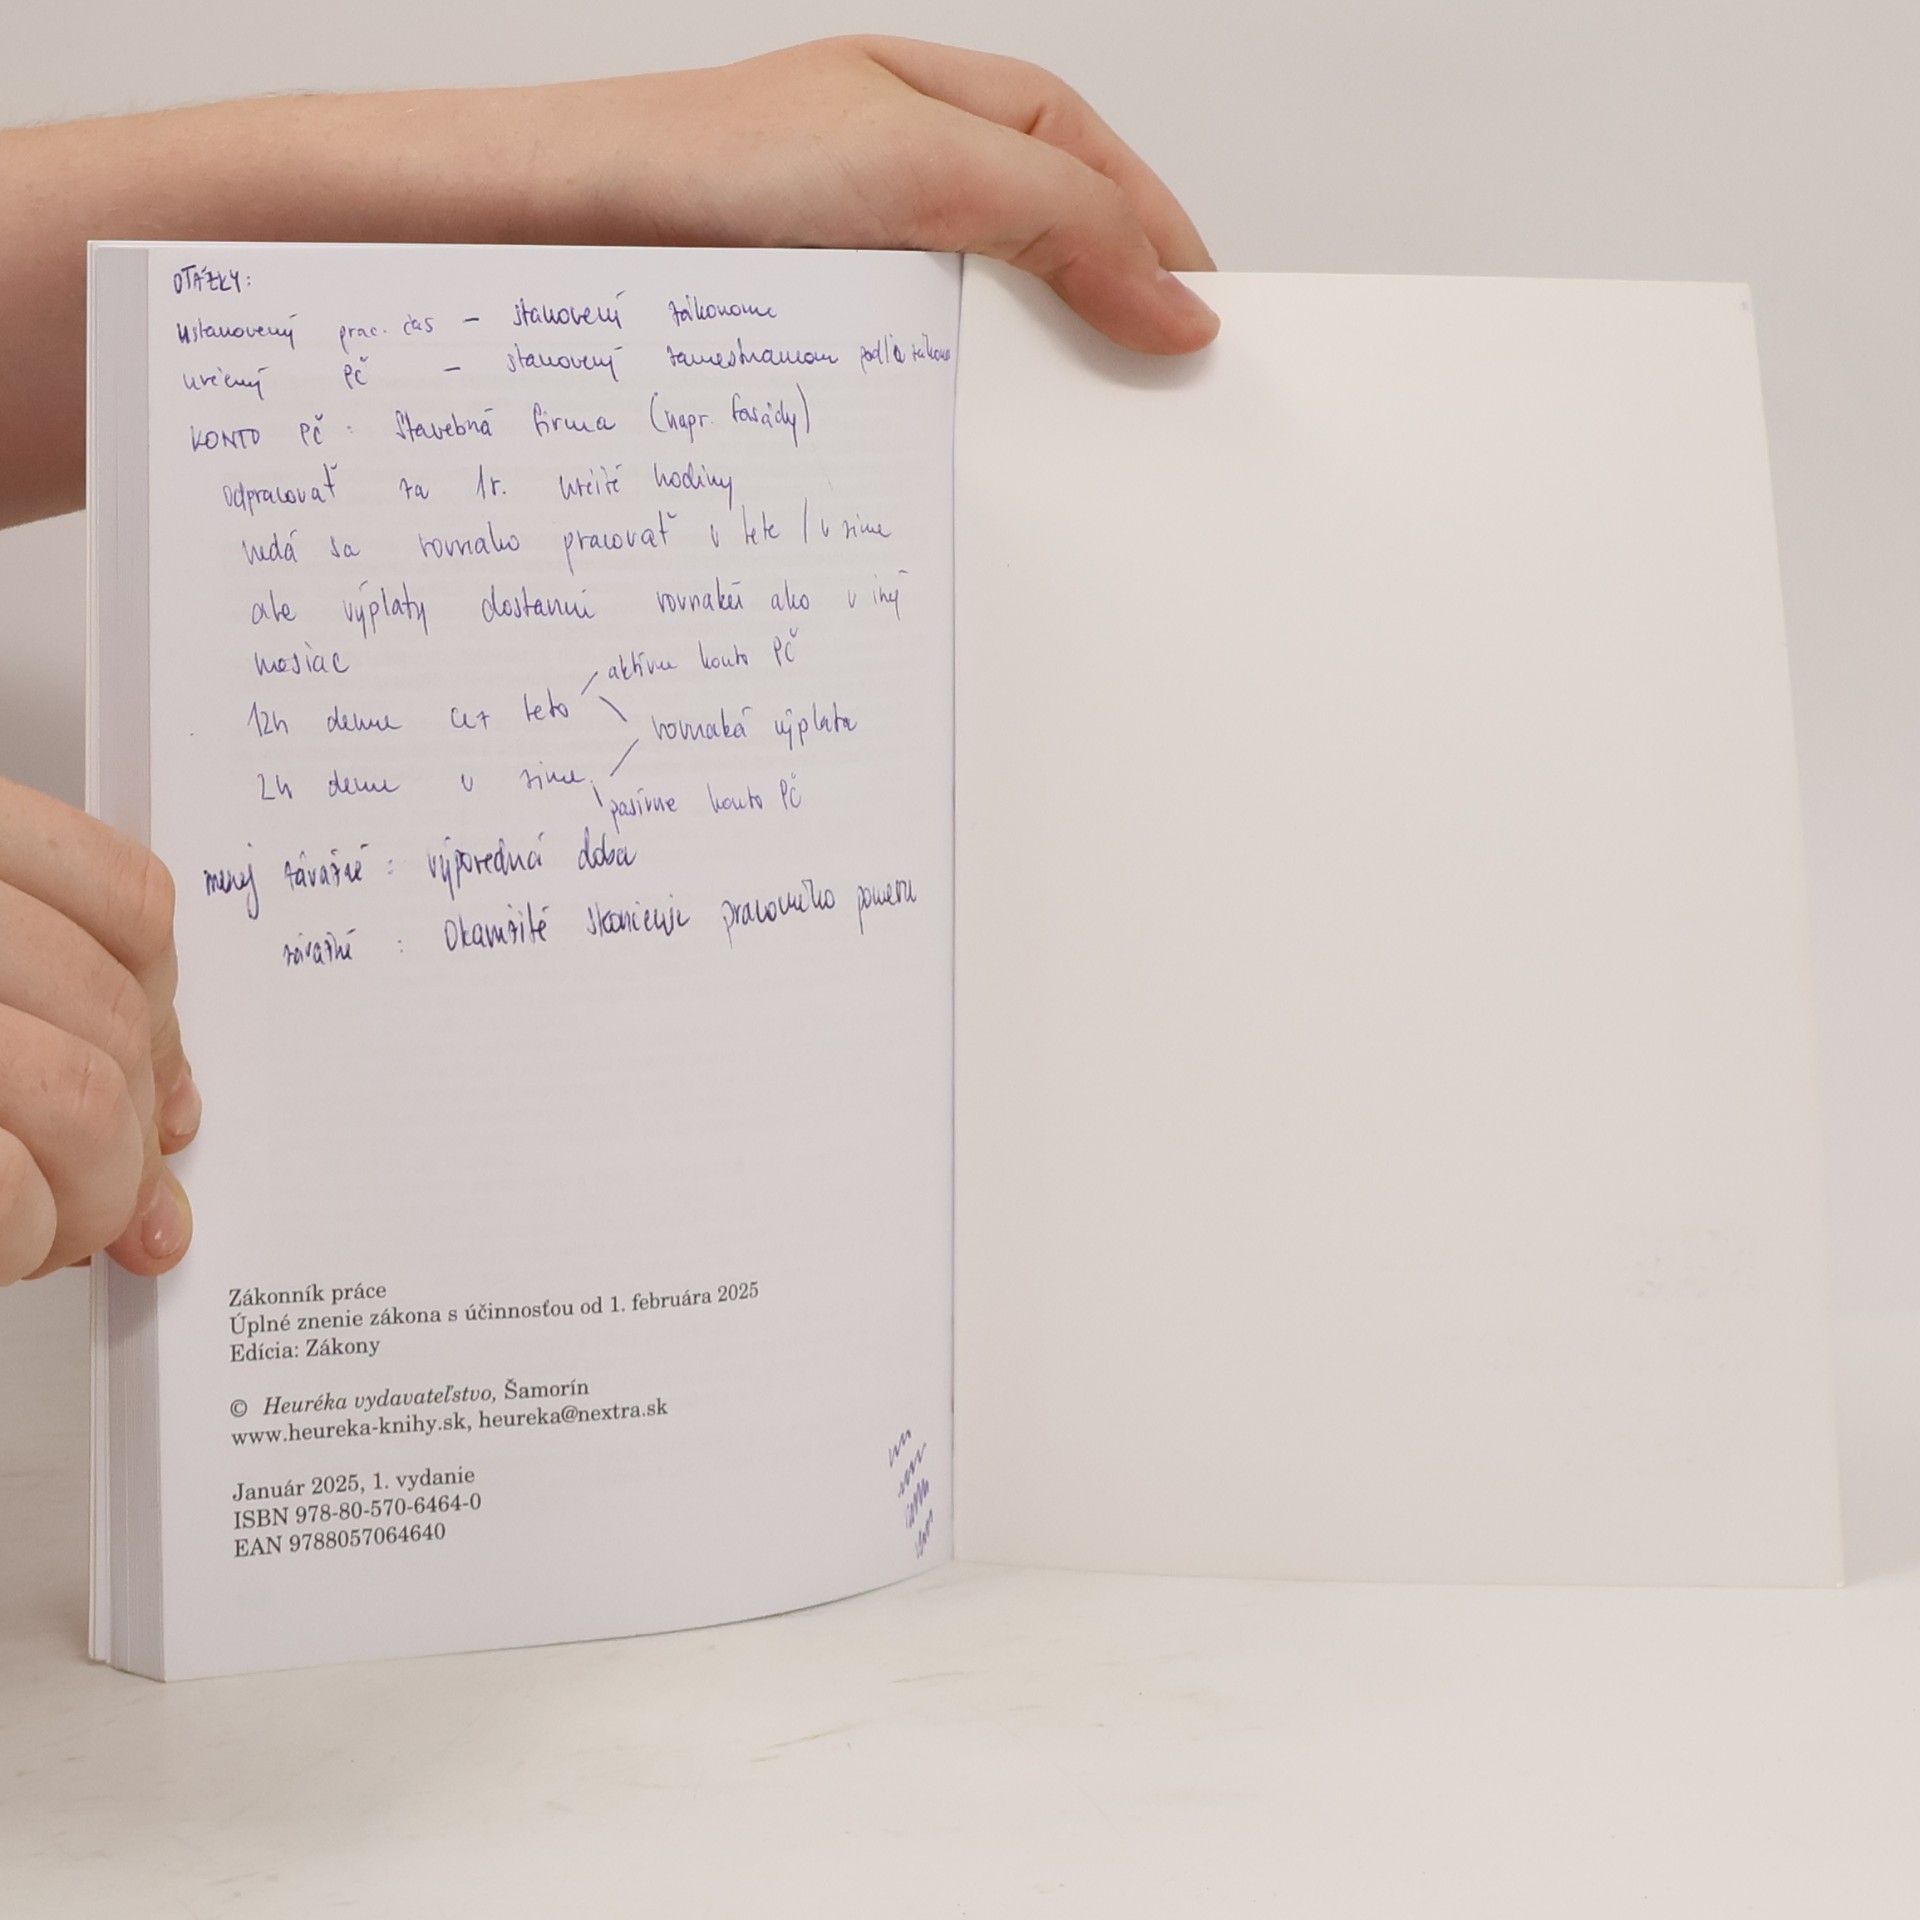 OTÁZKY:
ustanovený prac. čas – stanovený zákonom
určený PČ – stanovený zamestnancom podľa zákona
KONTO PČ : stavebná firma (napr. fasády)
odpracovať za 1r. určité hodiny
nedá sa rovnako pracovať v lete / v zime
ale výplaty dostanú rovnakú ako v iný
mesiac
aktívne konto PČ
12h denne cez leto
rovnaká výplata
2h denne v zime
pasívne konto PČ
menej závažné : výpovedná doba
závažné : Okamžité skončenie pracovného pomeru
Zákonník práce
Úplné znenie zákona s účinnosťou od 1. februára 2025
Edícia: Zákony
© Heuréka vydavateľstvo, Šamorín
www.heureka-knihy.sk, heureka@nextra.sk
Január 2025, 1. vydanie
ISBN 978-80-570-6464-0
EAN 9788057064640